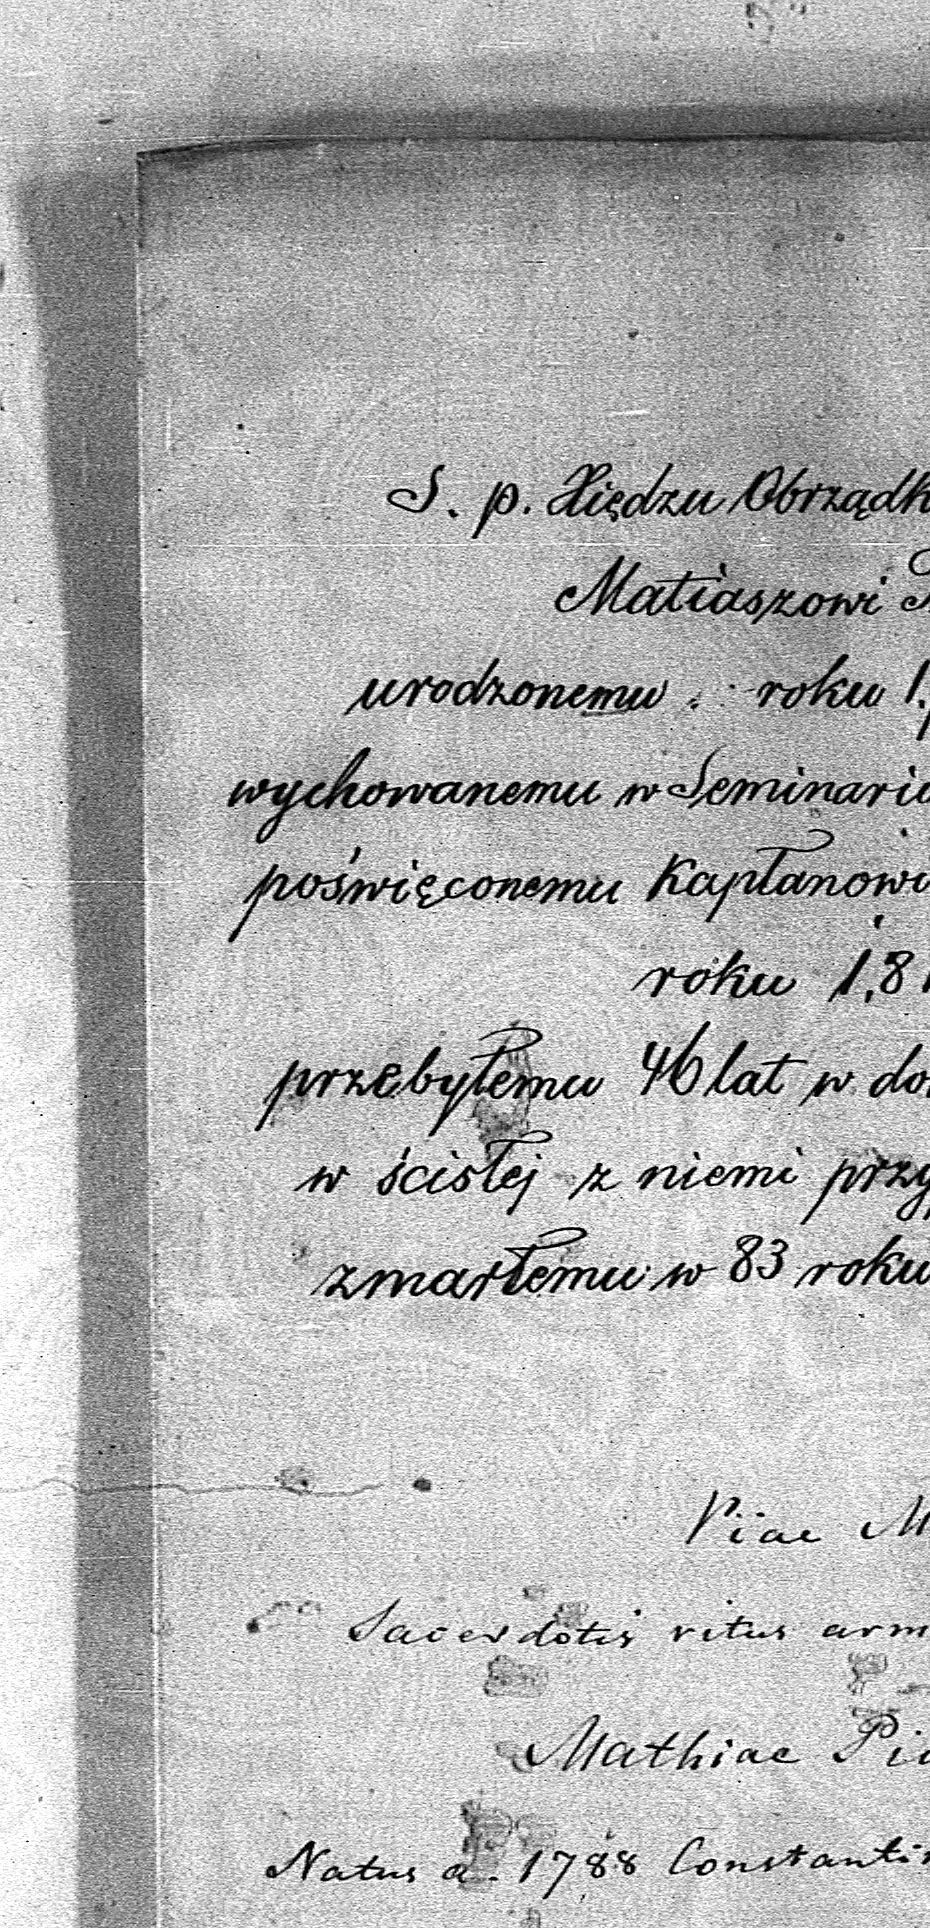 S. p. Xiędzu Obrządk
Matiaszowi
urodzonemu . roku 1.
wychowanemu w Seminari
poświęconemu Kapłanowi
roku 1,8
przebyłemu 46 lat w do
w ścisłej z niemi przy
zmarłemu w 83 roku
Piae M
Sacerdotis ritus arm
Mathiae Pi
Natus a. 1788 Constantin